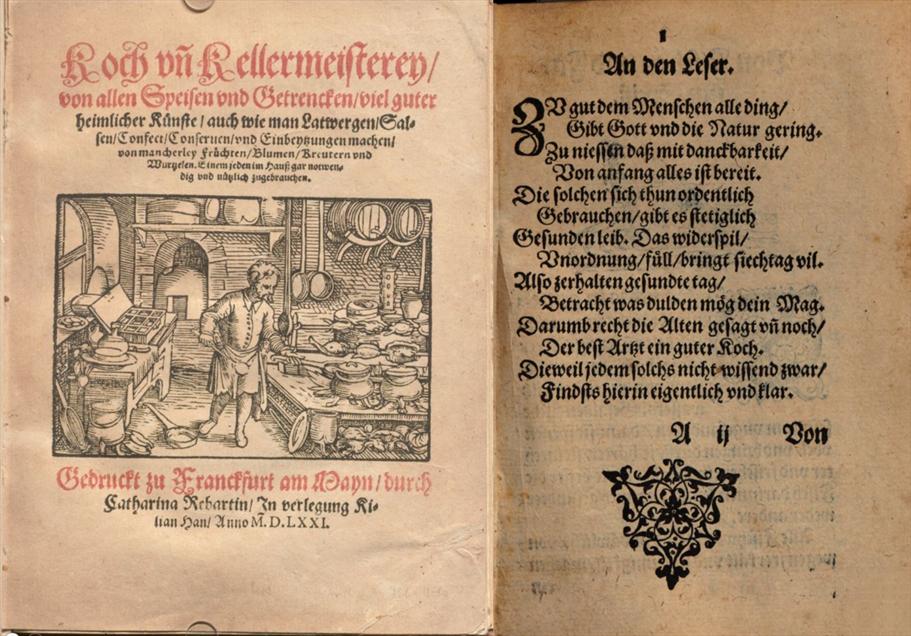 Koch vñ Kellermeisterey/
von allen Speisen vnd Getrencken/viel guter
heimlicher Künste/ auch wie man Latwergen/Sal-
sen/Confect/Conseruen/vnd Einbeytzungen machen/
von mancherley Früchten/Blumen/Kreutern vnd
Wurtzelen. Einem jeden im Hauß gar notwen-
dig vnd nützlich zugebrauchen.
Gedruckt zu Franckfurt am Mayn/durch
Catharina Rebartin/ In verlegung Ki-
lian Han/ Anno M.D.LXXI.
1
An den Leser.
ZV gut dem Menschen alle ding/
Gibt Gott vnd die Natur gering.
Zu niessen daß mit danckbarkeit/
Von anfang alles ist bereit.
Die solchen sich thun ordentlich
Gebrauchen/gibt es stetiglich
Gesunden leib. Das widerspil/
Vnordnung/füll/bringt siechtag vil.
Also zerhalten gesundte tag/
Betracht was dulden mög dein Mag.
Darumb recht die Alten gesagt vñ noch/
Der best Artzt ein guter Koch.
Dieweil jedem solchs nicht wissend zwar/
Findsts hierin eigentlich vnd klar.
A ij Von